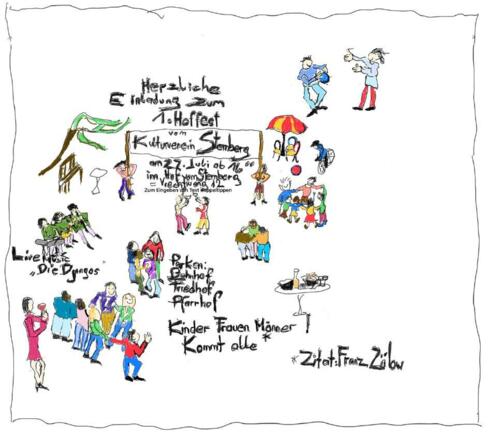 Herzliche
Einladung zum
1. Hoffest
vom
Kulturverein Stenberg
am 27. Juli ab 16⁰⁰
im Hof vom Stenberg
Zum Eingeben von Text doppeltippen
Live Music
„Die Djangos"
Parken:
Bahnhof
Friedhof
Pfarrhof
Kinder Frauen Männer !
Kommt alle *
*Zitat: Franz Zülow